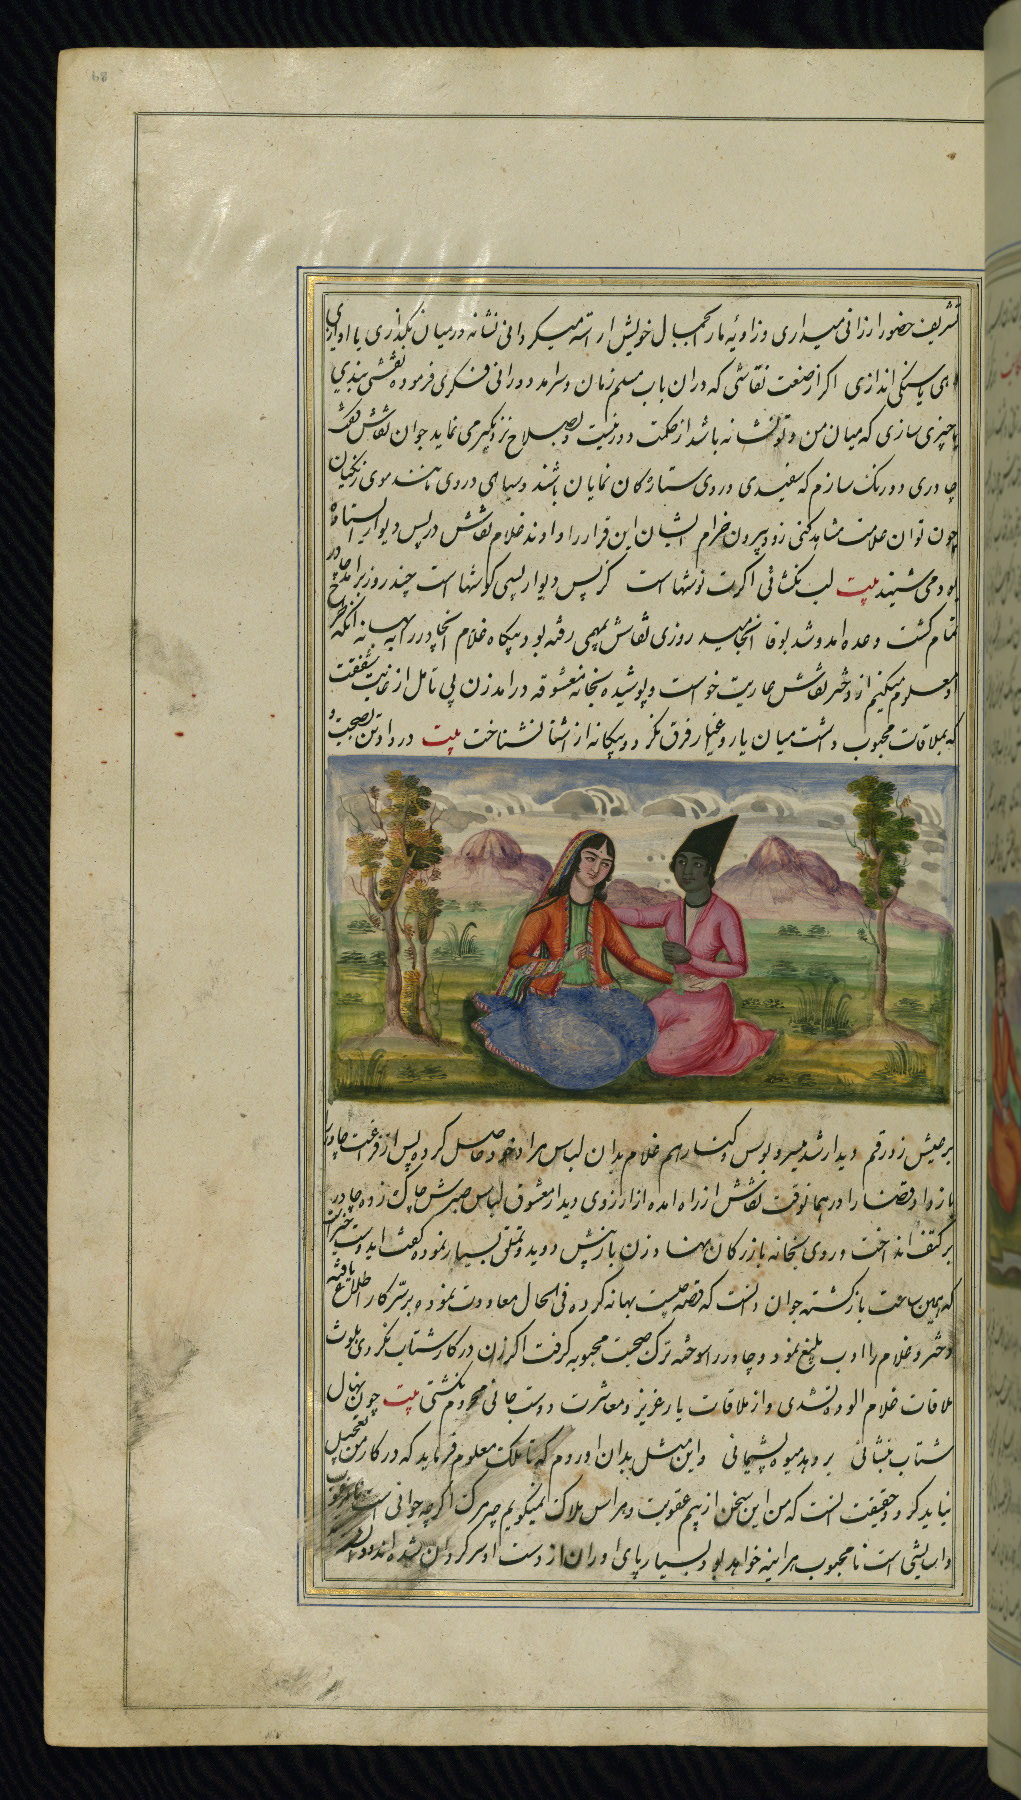 68
تشریف حضور ارزانی میداری و زاویه ما را بجمال خویش اراسته میگردانی نشانه درمیان بگذاری یا اوازی
دهی یا سنگی اندازی اگر از صنعت نقاشی که دران باب مسلم زمان و سرامد دورانی فکری فرموده نقشی بندی
یا چیزی سازی که میان من و تو نشانه باشد از حکمت دور نیست و بصلاح نزدیکتر می نماید جوان نقاش گفت
چادری دو رنک سازم که سفیدی دروی ستارگان نمایان باشند و سیاهی دروی مانند موی زنگیان
چون توان علامت مشاهد کنی زود بیرون خرام ایشان این قرار را دادند غلام نقاش در پس دیوار ایستاده
بود می شنید بیت لب نگشائی اگرت نوشهاست کز پس دیوار بسی گوشهاست چند روز برامد چادر
تمام گشت وعده امد و شد بوفا انجامید روزی نقاش بمهمی رفته بود و بیگاه غلام انچادر را به بهانه انکه طرح
او معلوم میکنیم از دختر نقاش عاریت خواست و پوشیده بخانه معشوقه درامد زن بی تامل از غایت شفقت
که بملاقات محبوب داشت میان یار و اغیار فرق نکرد و بیگانه از اشنا نشناخت بیت در داد تن بصحبت و
بر عیش زد رقم دیدار شد میسر و بوس و کنار هم غلام بدان لباس مراد خود حاصل کرده پس از فراغت چادر
باز داد قضا را در همانوقت نقاش از راه امده از ارزوی دیدار معشوق لباس صبرش چاک زده چادر
بر کتف انداخت و روی بخانه بازرگان نهاد زن باز پیش دوید و تملقی بسیار نموده گفت ایدوست خیرست
که همین ساعت باز گشته جوان دانست که قصه چیست بهانه کرده فی الحال معاودت نموده بر سر کار اطلاع یافته
دختر و غلام را ادب بلیغ نمود و چادر را سوخته ترک صحبت محبوبه گرفت اگر زن در کار شتاب نکردی بلوث
ملاقات غلام الوده نشدی و از ملاقات یار عزیز و معاشرت دوست جانی محروم نگشتی بیت چون نهال
شتاب بنشانی بر دهد میوه پشیمانی و این مثل بدان اوردم که تا ملک معلوم فرماید که در کار من تعجیل
نباید کرد و حقیقت انست که من این سخن از بیم عقوبت و هراس هلاک نمیگویم چه مرگ اگرچه جوانی است نامرغوب
و اسایشی است نامحبوب هر اینه خواهد بود بسیار پای اوران از دست او سرگردان شده اند